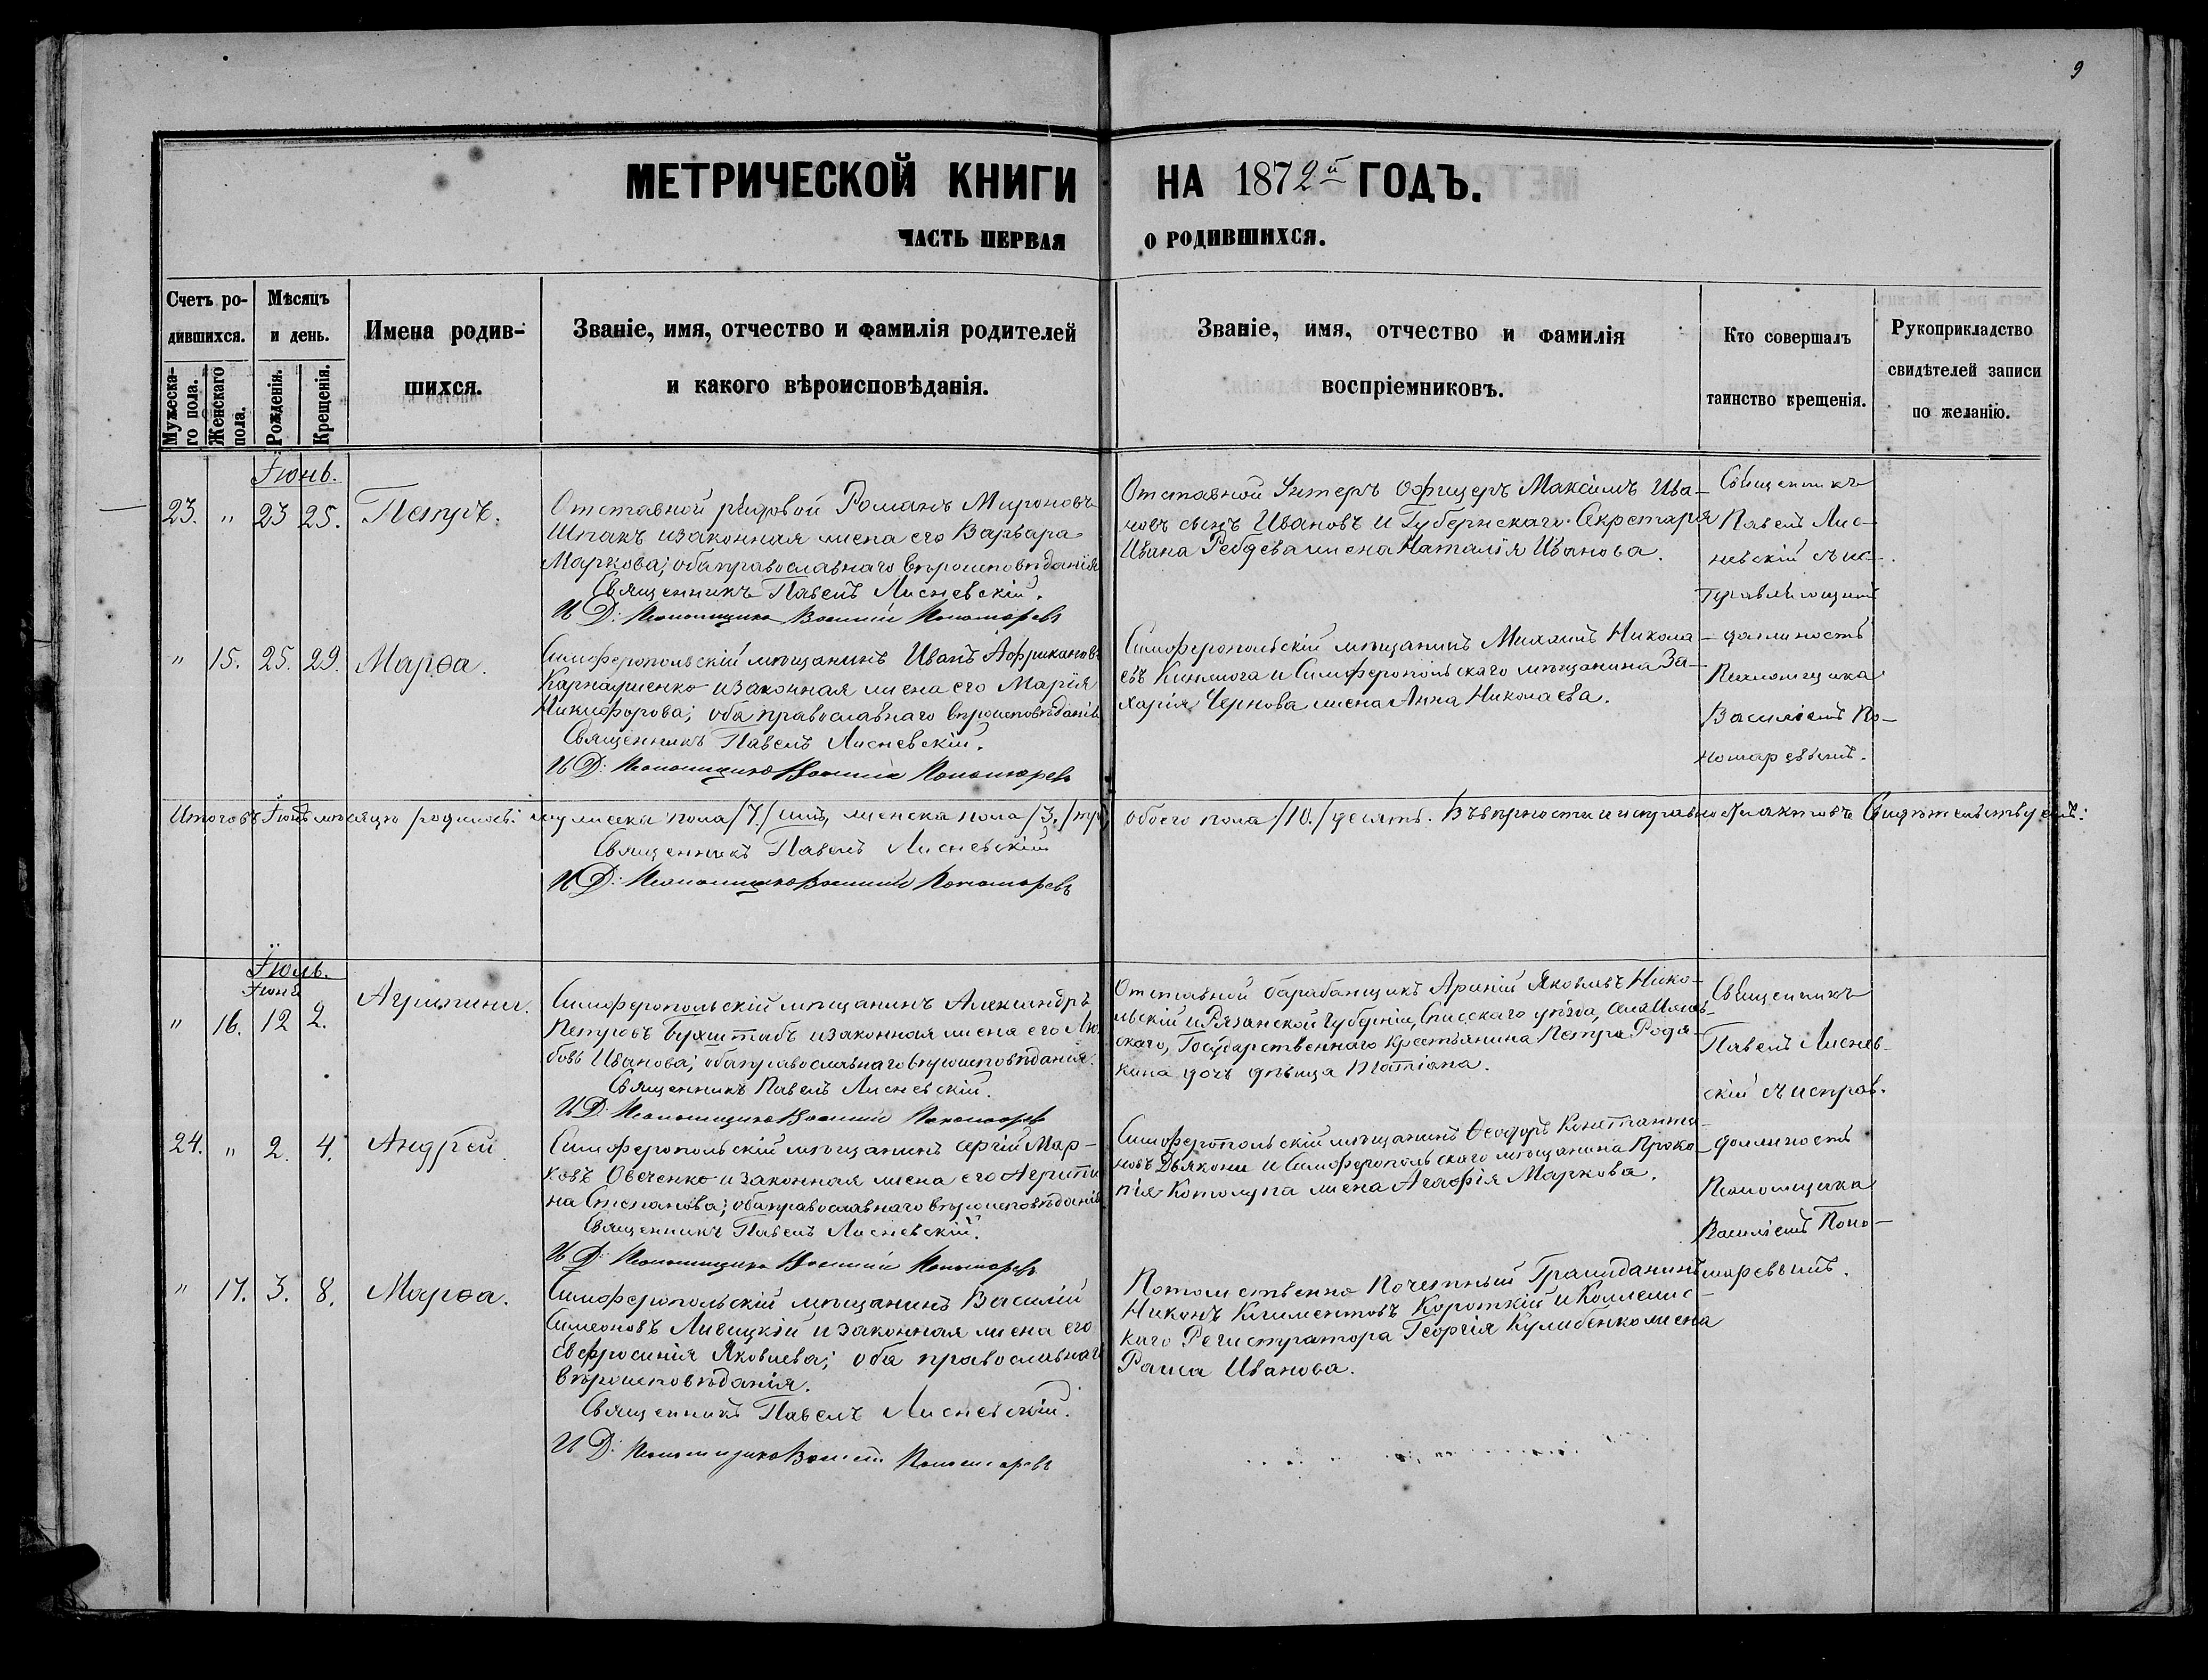 9
МЕТРИЧЕСКОЙ КНИГИ НА 1872й ГОДЪ.
ЧАСТЬ ПЕРВАЯ О РОДИВШИХСЯ.
Счетъ ро-
дившихся.
Мужеска-
го пола.
Женскаго
пола.
Мѣсяцъ
и день.
Рожденія.
Крещенія.
Имена родив-
шихся.
Званіе, имя, отчество и фамилія родителей
и какого вѣроисповѣданія.
Званіе, имя, отчество и фамилія
воспріемниковъ.
Кто совершалъ
таинство крещенія.
Рукоприкладство
свидѣтелей записи
по желанію.
Іюнь.
23. " 23 25. Петръ.
Отставной рядовой Романъ Мироновъ
Шпакъ и законная жена его Варвара
Маркова; оба православнаго вѣроисповѣданія
Священникъ Павелъ Лисневскій.
И Д: Псаломщика Василій Пономаревъ
Отставной Унтеръ Офицеръ Максимъ Ива-
новъ сынъ Ивановъ и Губернскаго Секретаря
Ивана жена Наталія Иванова.
Священникъ
Павелъ Лис-
невскій съ ис-
правляющимъ
должность
Псаломщика
Василіемъ По-
номаревымъ.
" 15. 25. 29. Марѳа.
Симферопольскій мѣщанинъ Иванъ Африкановъ
Карнаушенко и законная жена его Марія
Никифорова; оба православнаго вѣроисповѣданія
Священникъ Павелъ Лисневскій.
И Д: Псаломщика Василій Пономаревъ
Симферопольскій мѣщанинъ Михаилъ Никола-
евъ и Симферопольскаго мѣщанина За-
харія Чернова жена Анна Николаева.
Итого въ Іюнѣ мѣсяцѣ родилось: мужеска пола /7./ семь, женска пола /3./ три, обоего пола /10./ десять. Въ вѣрности и исправности актовъ Свидѣтельствуемъ:
Священникъ Павелъ Лисневскій
И Д: Псаломщика Василій Пономаревъ
Іюль.
Іюня
" 16. 12 2. Агрипина.
Симферопольскій мѣщанинъ Александръ
Петровъ Бухштабъ и законная жена его Лю-
бовь Иванова; оба православнаго вѣроисповѣданія.
Священникъ Павелъ Лисневскій.
И Д: Псаломщика Василій Пономаревъ
Отставной барабанщикъ Яковлевъ Нико-
льскій и Рязанской Губерніи, Спасскаго уѣзда,
скаго, Государственнаго крестьянина Петра Родя-
кина дочь дѣвица Татіана.
Священникъ
Павелъ Лиснев-
скій съ исправ.
должность
Псаломщика
Василіемъ Поно-
маревымъ.
24. " 2. 4. Андрей.
Симферопольскій мѣщанинъ Сергій Мар-
ковъ Овеченко и законная жена его Агрипи-
на Степанова; оба православнаго вѣроисповѣданія
Священникъ Павелъ Лисневскій.
И Д: Псаломщика Василій Пономаревъ
Симферопольскій мѣщанинъ Ѳеодоръ Константи-
новъ Дьяконъ и Симферопольскаго мѣщанина Проко-
пія Котолупа жена Агафія Маркова.
" 17. 3. 8. Марѳа.
Симферопольскій мѣщанинъ Василій
Симеоновъ Ливицкій и законная жена его
Евфросинія Яковлева; оба православнаго
вѣроисповѣданія.
Священникъ Павелъ Лисневскій.
И Д: Псаломщика Василій Пономаревъ
Потомственно Почетный Гражданинъ
Никонъ Климентовъ Короткій и Коллежс-
каго Регистратора Георгія Кулибенко жена
Раиса Иванова.